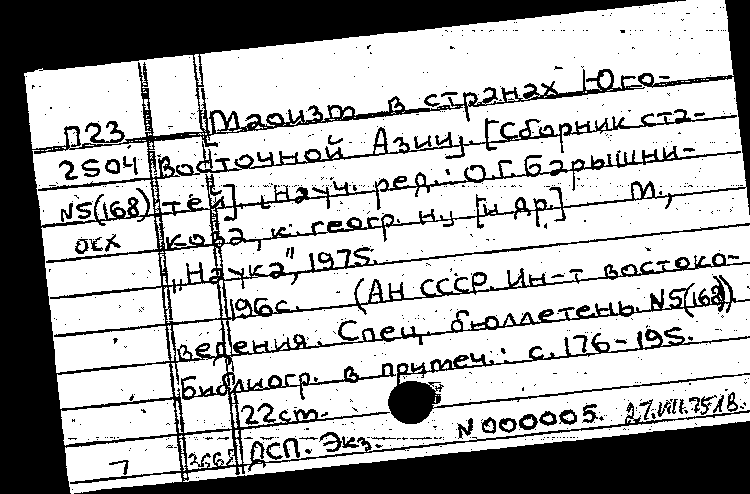 П23 Маоизм в странах Юго-
2504 Восточной Азии. [Сборник ста-
N5(168) тей]. [Науч. ред.: О.Г. Барышни-
ОКХ кова, к. геогр. н., [и др.] М.,
"Наука", 1975.
196с. (АН СССР. Ин-т востоко-
ведения. Спец. бюллетень. N5(168))
Библиогр. в примеч.: с. 176-195.
22 ст.
7 3668 ДСП. Экз. N 000005. 27.VIII.75